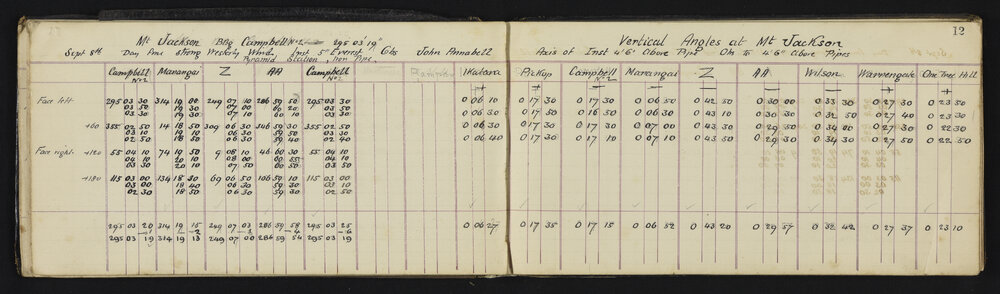 Mt Jackson BBg Campbell No 2 295 03' 19"
Sept 8th Day Fine Strong Westerly Wind Inst 5" Everest Obs John Annabell
Pyramid Station Iron Pipe
Campbell No 2 Marangai Z AA Campbell No 2
Face left 295 03 30 314 19 00 249 07 10 286 59 50 295 03 30
03 50 19 30 07 00 60 20 03 50
03 30 19 30 07 10 60 10 03 30
+60 355 02 50 14 18 50 309 06 30 346 59 30 355 02 50
03 10 19 10 06 30 59 50 03 10
02 50 18 50 06 30 59 40 02 40
Face right +120 55 04 10 74 19 50 9 08 10 46 60 30 55 04 10
04 10 20 10 08 00 00 55 04 10
03 30 20 10 07 50 00 50 03 50
+180 115 03 00 134 18 30 69 06 50 106 59 10 115 03 00
03 00 18 40 06 30 59 30 03 10
02 30 18 50 06 30 59 30 02 50
295 03 20 314 19 15 249 07 03 286 59 58 295 03 25
295 03 19 314 19 13 249 07 00 286 59 54 295 03 19
12
Vertical Angles at Mt Jackson
Axis of Inst 4'6" above Pipe Obs to 4'6" above Pipes
Ikatara Pickup Campbell No 2 Marangai Z AA Wilson Warrengate One Tree Hill
0 06 10 0 17 30 0 17 30 0 06 50 0 42 50 0 30 00 0 33 30 0 27 30 0 23 50
0 06 30 0 17 30 0 16 50 0 06 30 0 43 10 0 30 30 0 32 50 0 27 40 0 23 30
0 06 30 0 17 30 0 17 30 0 07 00 0 43 30 0 29 50 0 34 00 0 27 30 0 22 30
0 06 40 0 17 30 0 17 10 0 07 10 0 43 50 0 29 30 0 34 30 0 27 50 0 22 50
0 06 27 0 17 35 0 17 15 0 06 52 0 43 20 0 29 57 0 32 42 0 27 37 0 23 10